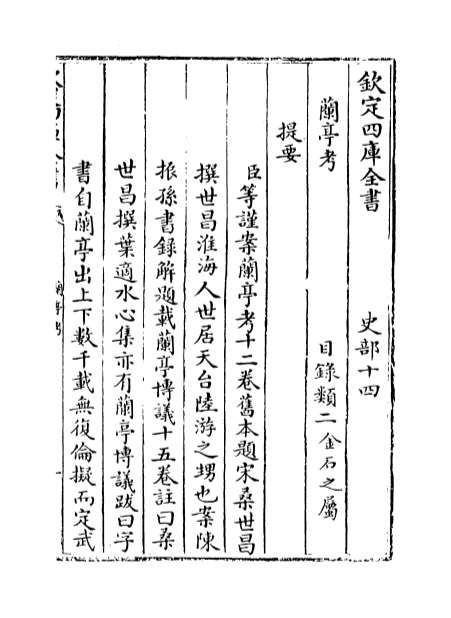 欽定四庫全書　史部十四
蘭亭考　目錄類二金石之屬
提要
臣等謹案蘭亭考十二卷舊本題宋桑世昌
撰世昌淮海人世居天台陸游之甥也案陳
振孫書錄解題載蘭亭博議十五卷註曰桑
世昌撰葉適水心集亦有蘭亭博議跋曰字
書自蘭亭出上下數千載無復倫擬而定武
蘭亭考